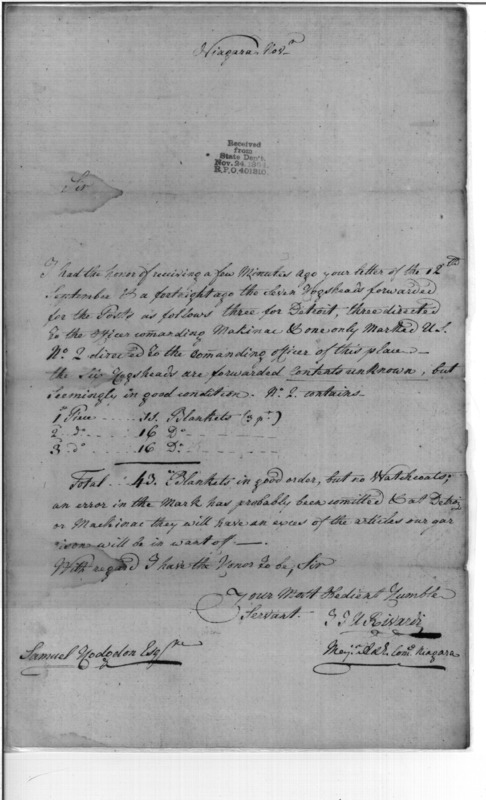 Niagara Novr.
Received
from
State Dep't.
Nov. 24,
R.P.O. 401810.
Sir
I had the honor of receiving a few Minutes ago your letter of the 12th
September & a fortnight ago the Seven Hogsheads forwarded
for the Posts as follows three for Detroit, three directed
to the officer comanding Makinac & one only Marked U.S.
No. 2 directed to the comanding officer of this place —
the Six Hogsheads are forwarded Contents unknown, but
Seemingly in good condition. No. 2. contains.
1st Piece 11. Blankets (3 pt.)
2 do. 16 Do.
3 do. 16 Do.
Total 43. Blankets in good order, but no Watchcoats;
an error in the Mark has probably been comitted & at Detroit
or Mackinac they will have an exces of the articles our gar
rison will be in want of —
With regard I have the Honor to be, Sir
Your Most Hedient Humble
Servant.
J J U Rivardi
Samuel Hodgdon Esqre
Majr. Com. Niagara